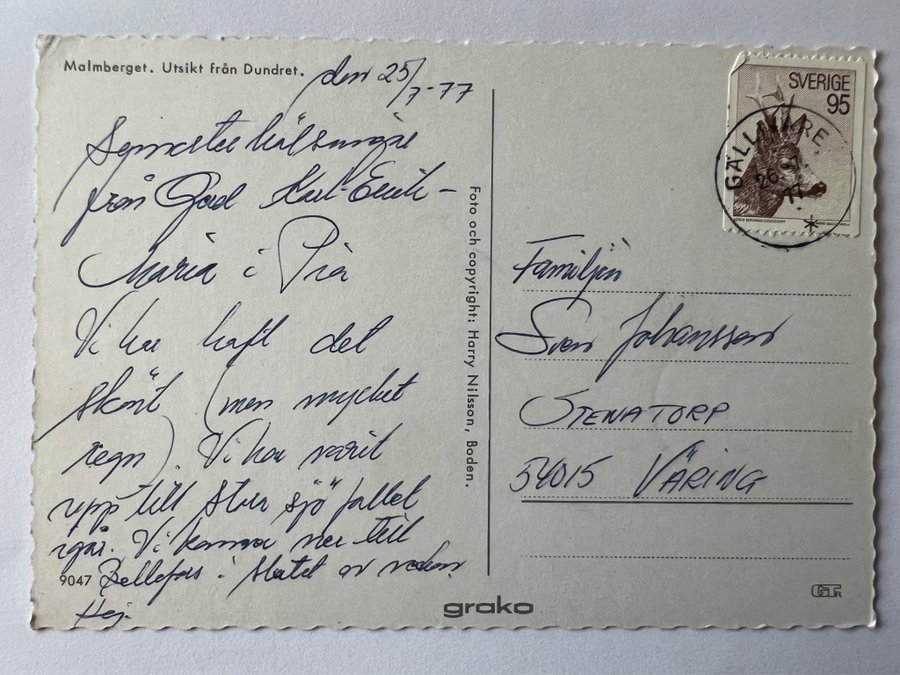 Malmberget. Utsikt från Dundret.
den 25/7-77
Semesterhälsningar
från Karl-Erik-
Maria i Pia
Vi har haft det
skönt (men mycket
regn). Vi har varit
upp till stora sjöfallet
igår. Vi kommer ner till
Bellefors i slutet av veckan
Hej.
9047
Foto och copyright: Harry Nilsson, Boden.
grako
SVERIGE
95
GÄLLIVARE
26.7.77
Familjen
Sven Johansson
STENATORP
54015 VÄRING